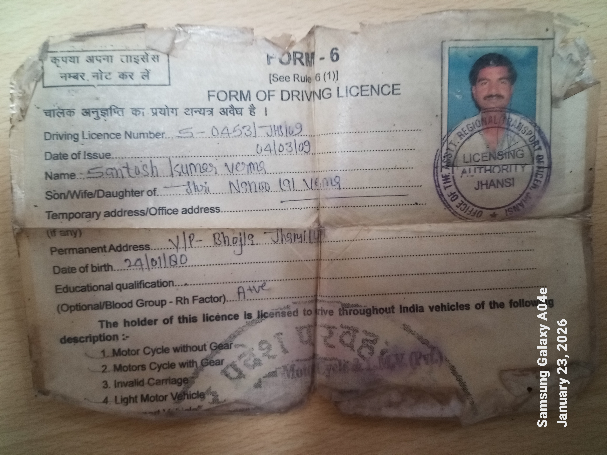 कृपया अपना लाइसेंस
नम्बर नोट कर लें
FORM - 6
[See Rule 6 (1)]
FORM OF DRIVING LICENCE
चालक अनुज्ञप्ति का प्रयोग अन्यत्र अवैध है ।
Driving Licence Number S-0453/JHS/09
Date of Issue 04/03/09
Name : Santosh Kumar Verma
Son/Wife/Daughter of Shri Verma
Temporary address/Office address
(if any)
Permanent Address V/P- Bhojla Jhansi
Date of birth 24/01/80
Educational qualification
(Optional/Blood Group - Rh Factor) A+ve
The holder of this licence is licensed to drive throughout India vehicles of the following
description :-
1. Motor Cycle without Gear
2. Motors Cycle with Gear
3. Invalid Carriage
4. Light Motor Vehicle
OFFICE OF THE REGIONAL TRANSPORT OFFICER JHANSI
LICENSING
AUTHORITY
JHANSI
प्रदेश परिवहन
Samsung Galaxy A04e
January 23, 2026